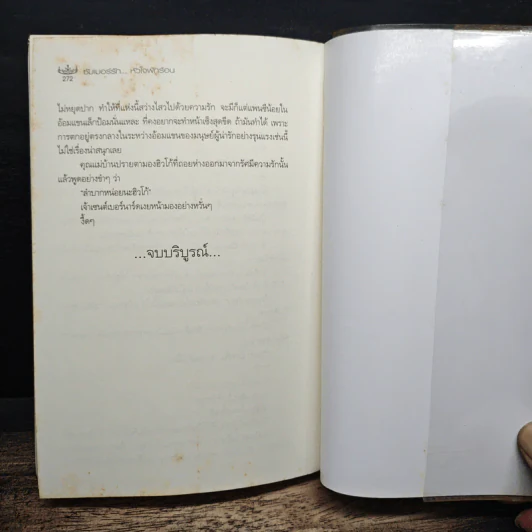 ซัมเมอร์รัก... หัวใจพักร้อน
272
ไม่หยุดปาก ทำให้ที่แห่งนี้สว่างไสวไปด้วยความรัก จะมีก็แต่แพนซีน้อยใน
อ้อมแขนเล็กป้อมนั่นแหละ ที่คงอยากจะทำหน้าเซ็งสุดขีด ถ้ามันทำได้ เพราะ
การตกอยู่ตรงกลางในระหว่างอ้อมแขนของมนุษย์ผู้น่ารักอย่างรุนแรงเช่นนี้
ไม่ใช่เรื่องน่าสนุกเลย
คุณแม่บ้านปรายตามองฮิวโก้ที่ถอยห่างออกมาจากรัศมีความรักนั้น
แล้วพูดอย่างขำๆ ว่า
"ลำบากหน่อยนะฮิวโก้"
เจ้าเซนต์เบอร์นาร์ดเงยหน้ามองอย่างหวั่นๆ
งื้ดๆ
...จบบริบูรณ์...